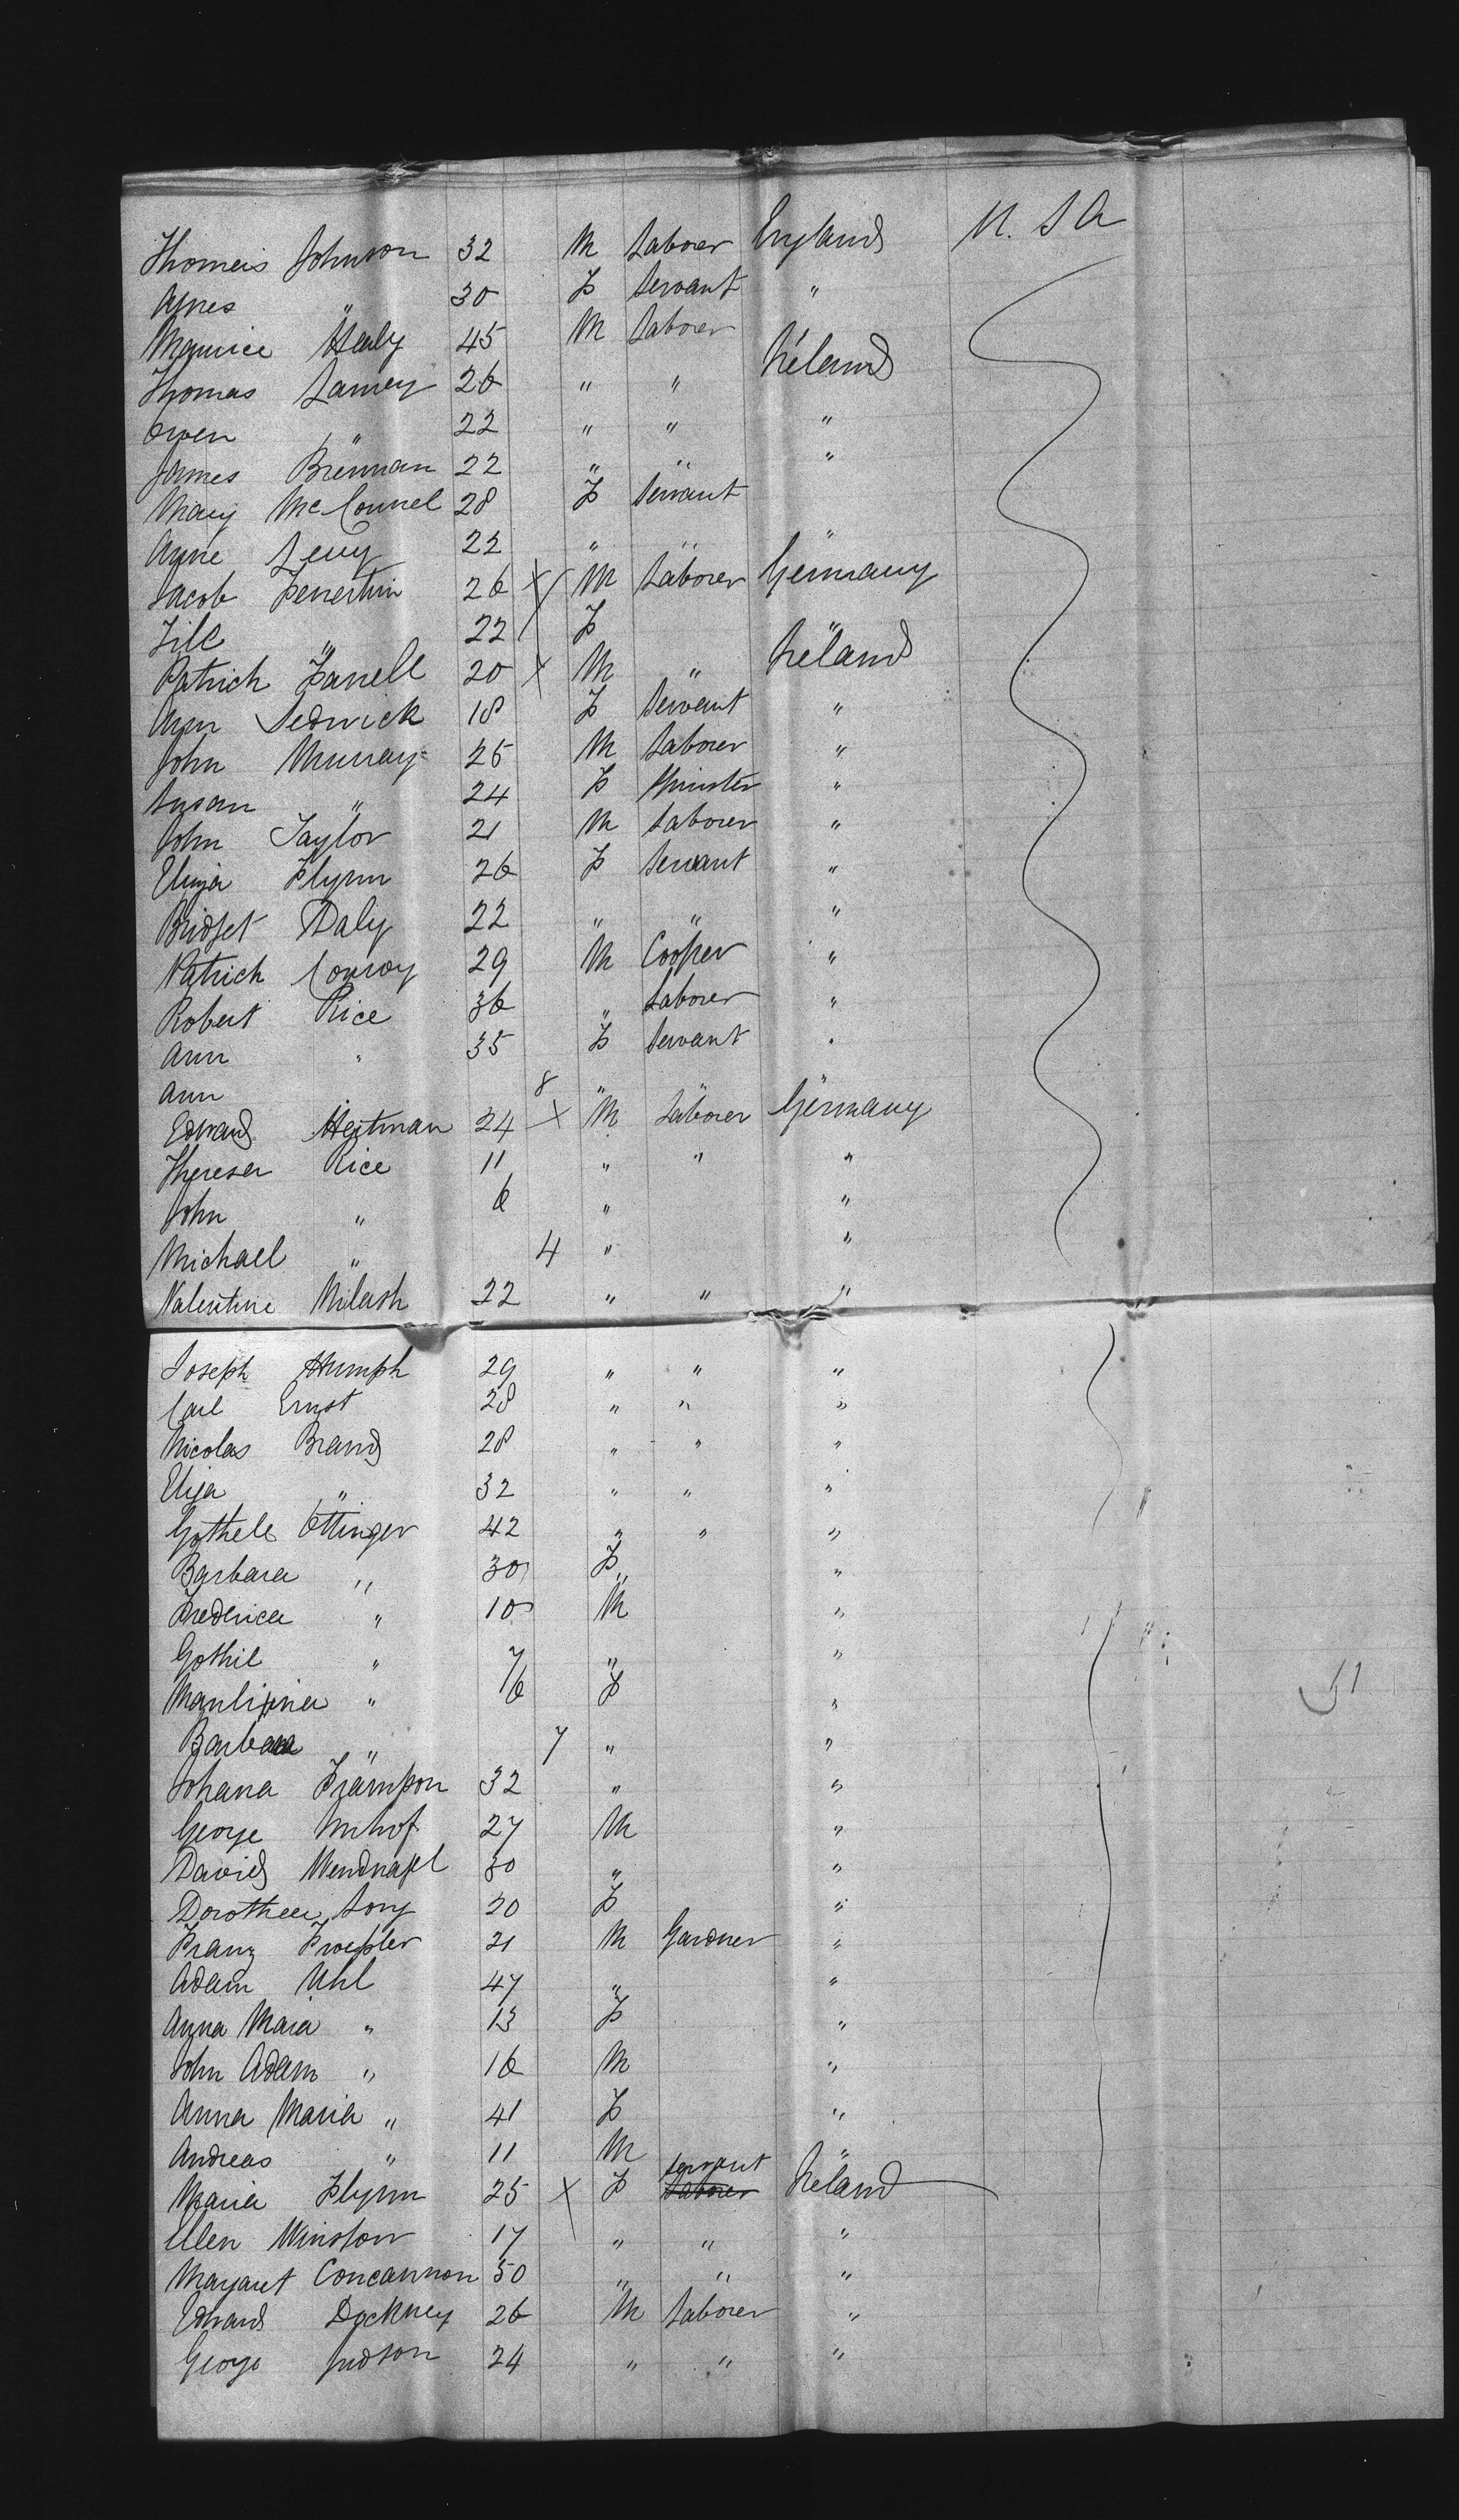 Thomas Johnson 32 M Laborer England U. S A
Agnes " 30 F Servant "
Maurice Healy 45 M Laborer
Thomas Lamey 26 " " Ireland
Owen " 22 " " "
James Brennan 22 " " "
Mary McConnel 28 F Servant
Anne Levy 22 " " "
Jacob 26 X M Laborer Germany
22 F
Patrick Farrell 20 X M " Ireland
Ann Sedwick 18 F Servant "
John Murray 25 M Laborer "
Susan " 24 F Spinster "
John Taylor 21 M Laborer "
Eliza Flynn 26 F Servant "
Bridget Daly 22 " " "
Patrick Conroy 29 M Cooper "
Robert Rice 36 " Laborer "
Ann " 35 F Servant "
Ann 8 " "
Edward Heitman 24 X M Laborer Germany
Theresa Rice 11 " " "
John " 6 " "
Michael " 4 " "
Valentine Milash 22 " " "
Joseph Humph 29 " " "
Carl Ernst 28 " " "
Nicolas Brand 28 " " "
Eliza " 32 " " "
Gothele Ottinger 42 " " "
Barbara " 30 F "
Frederica " 10 M "
Gothil " 7 " "
" 6 F " 51
Barbara " 7 " "
Johana 32 " "
George Imhof 27 M "
David 30 " "
Dorothea Long 20 F "
Franz 21 M Gardner "
Adam Uhl 47 " "
Anna Maria " 13 F "
John Adam " 16 M "
Anna Maria " 41 F "
Andreas " 11 M "
Maria Flynn 25 X F Laborer servant Ireland
Ellen Winston 17 " " "
Margaret Concannon 50 " " "
Edward Dockney 26 M Laborer "
George Judson 24 " " "